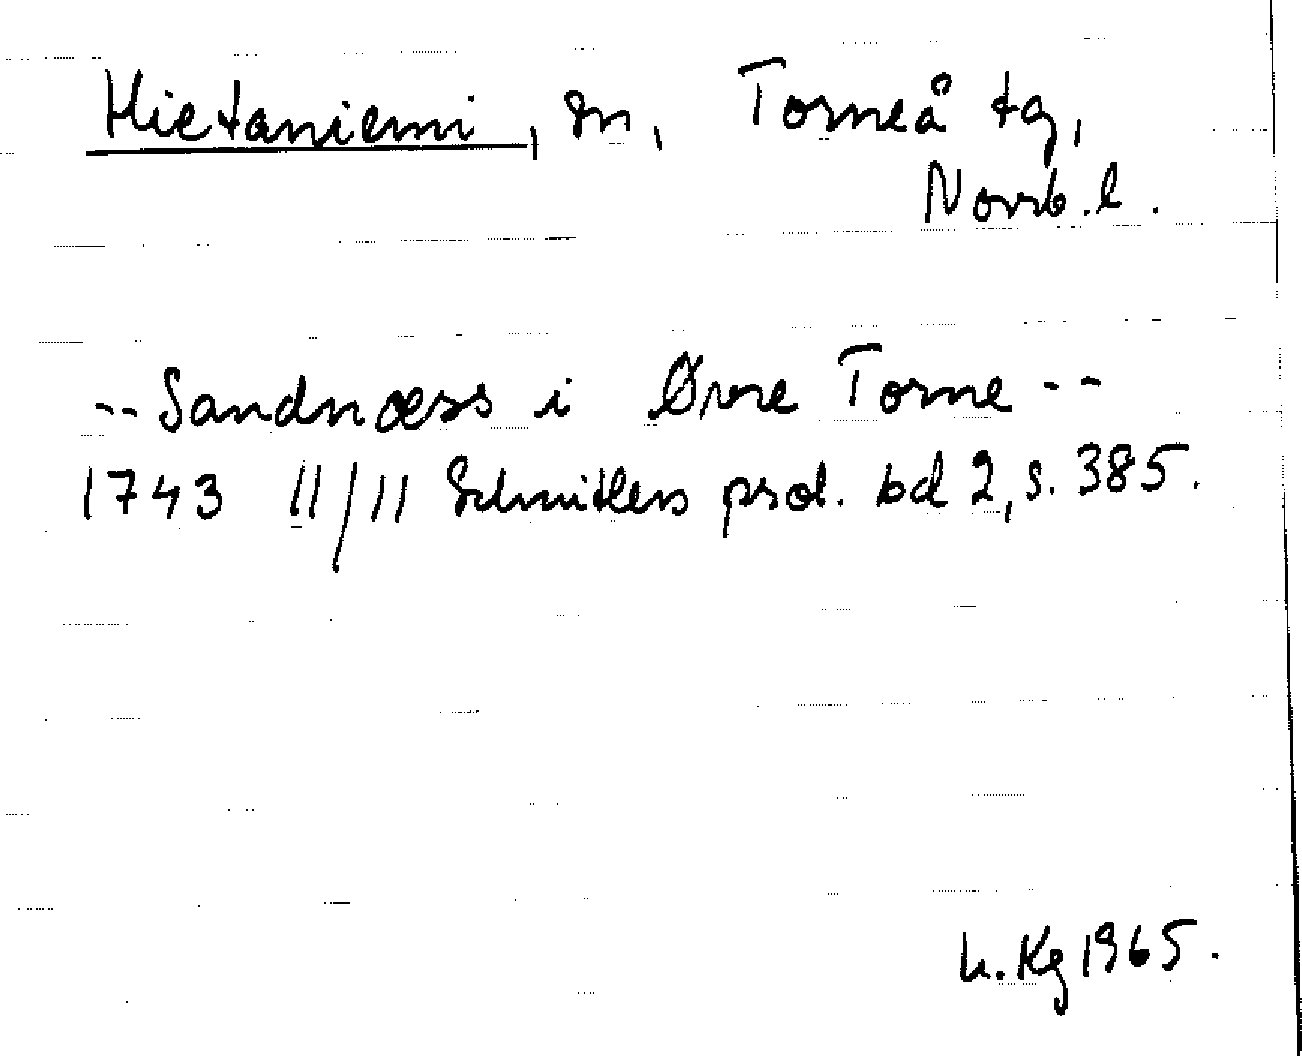 Hietaniemi, sn, Torneå tg,
Norrb. l.
-- Sandnæss i Øvre Torne --
1743 11/11 Schnitlers prot. bd 2, s. 385.
h. Kg 1965.